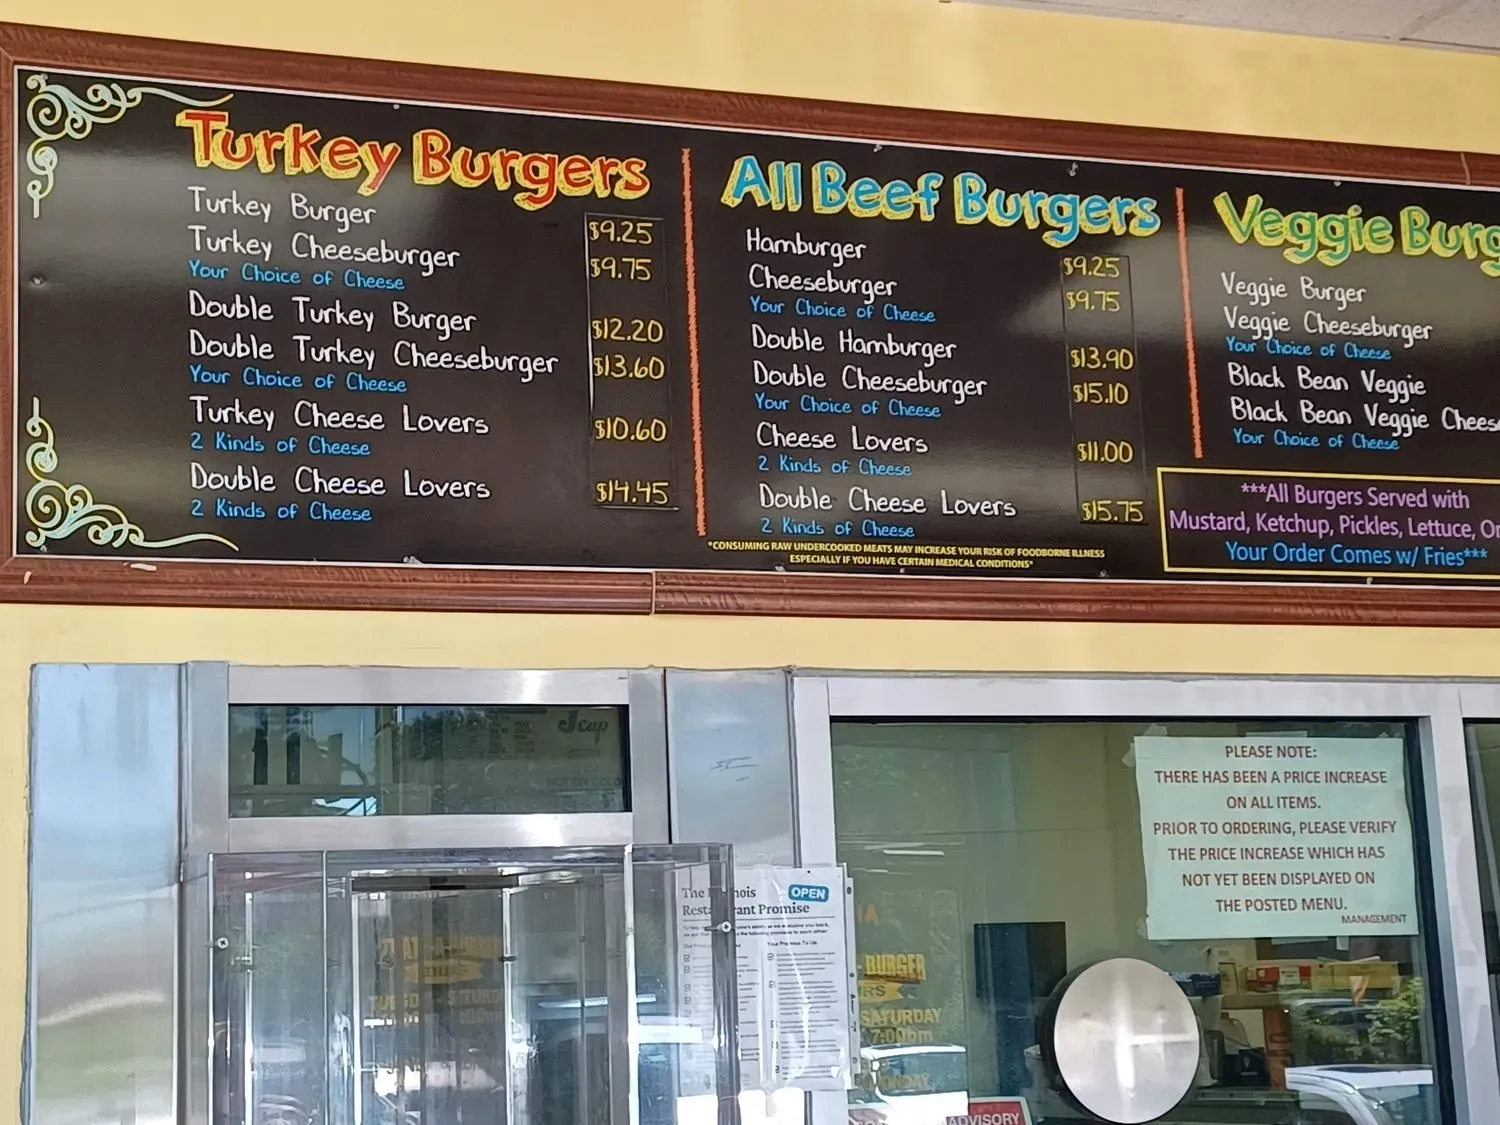 Turkey Burgers
Turkey Burger $9.25
Turkey Cheeseburger $9.75
Your Choice of Cheese
Double Turkey Burger $12.20
Double Turkey Cheeseburger $13.60
Your Choice of Cheese
Turkey Cheese Lovers $10.60
2 Kinds of Cheese
Double Cheese Lovers $14.45
2 Kinds of Cheese
All Beef Burgers
Hamburger $9.25
Cheeseburger $9.75
Your Choice of Cheese
Double Hamburger $13.90
Double Cheeseburger $15.10
Your Choice of Cheese
Cheese Lovers $11.00
2 Kinds of Cheese
Double Cheese Lovers $15.75
2 Kinds of Cheese
*CONSUMING RAW UNDERCOOKED MEATS MAY INCREASE YOUR RISK OF FOODBORNE ILLNESS
ESPECIALLY IF YOU HAVE CERTAIN MEDICAL CONDITIONS*
Veggie Burg
Veggie Burger
Veggie Cheeseburger
Your Choice of Cheese
Black Bean Veggie
Black Bean Veggie Chees
Your Choice of Cheese
***All Burgers Served with
Mustard, Ketchup, Pickles, Lettuce, On
Your Order Comes w/ Fries***
PLEASE NOTE:
THERE HAS BEEN A PRICE INCREASE
ON ALL ITEMS.
PRIOR TO ORDERING, PLEASE VERIFY
THE PRICE INCREASE WHICH HAS
NOT YET BEEN DISPLAYED ON
THE POSTED MENU.
MANAGEMENT
The Illinois
Restaurant Promise
OPEN
BURGER
SATURDAY
7:00pm
ADVISORY